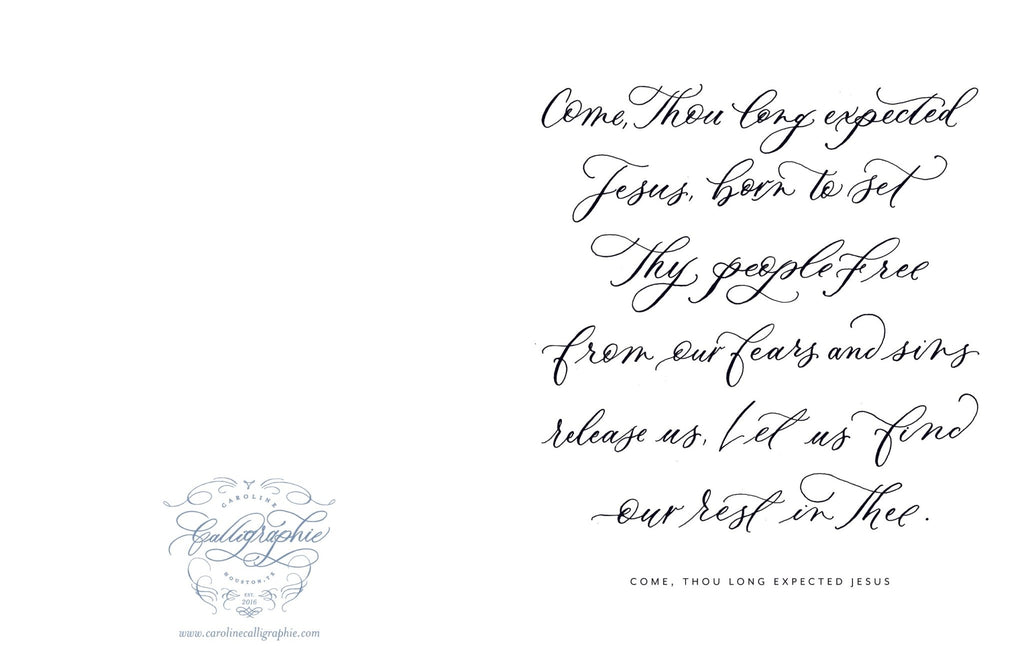 Come, Thou long expected
Jesus, born to set
Thy people free
from our fears and sins
release us, Let us find
our rest in Thee.
COME, THOU LONG EXPECTED JESUS
CAROLINE
Calligraphie
HOUSTON, TX
EST.
2016
www.carolinecalligraphie.com